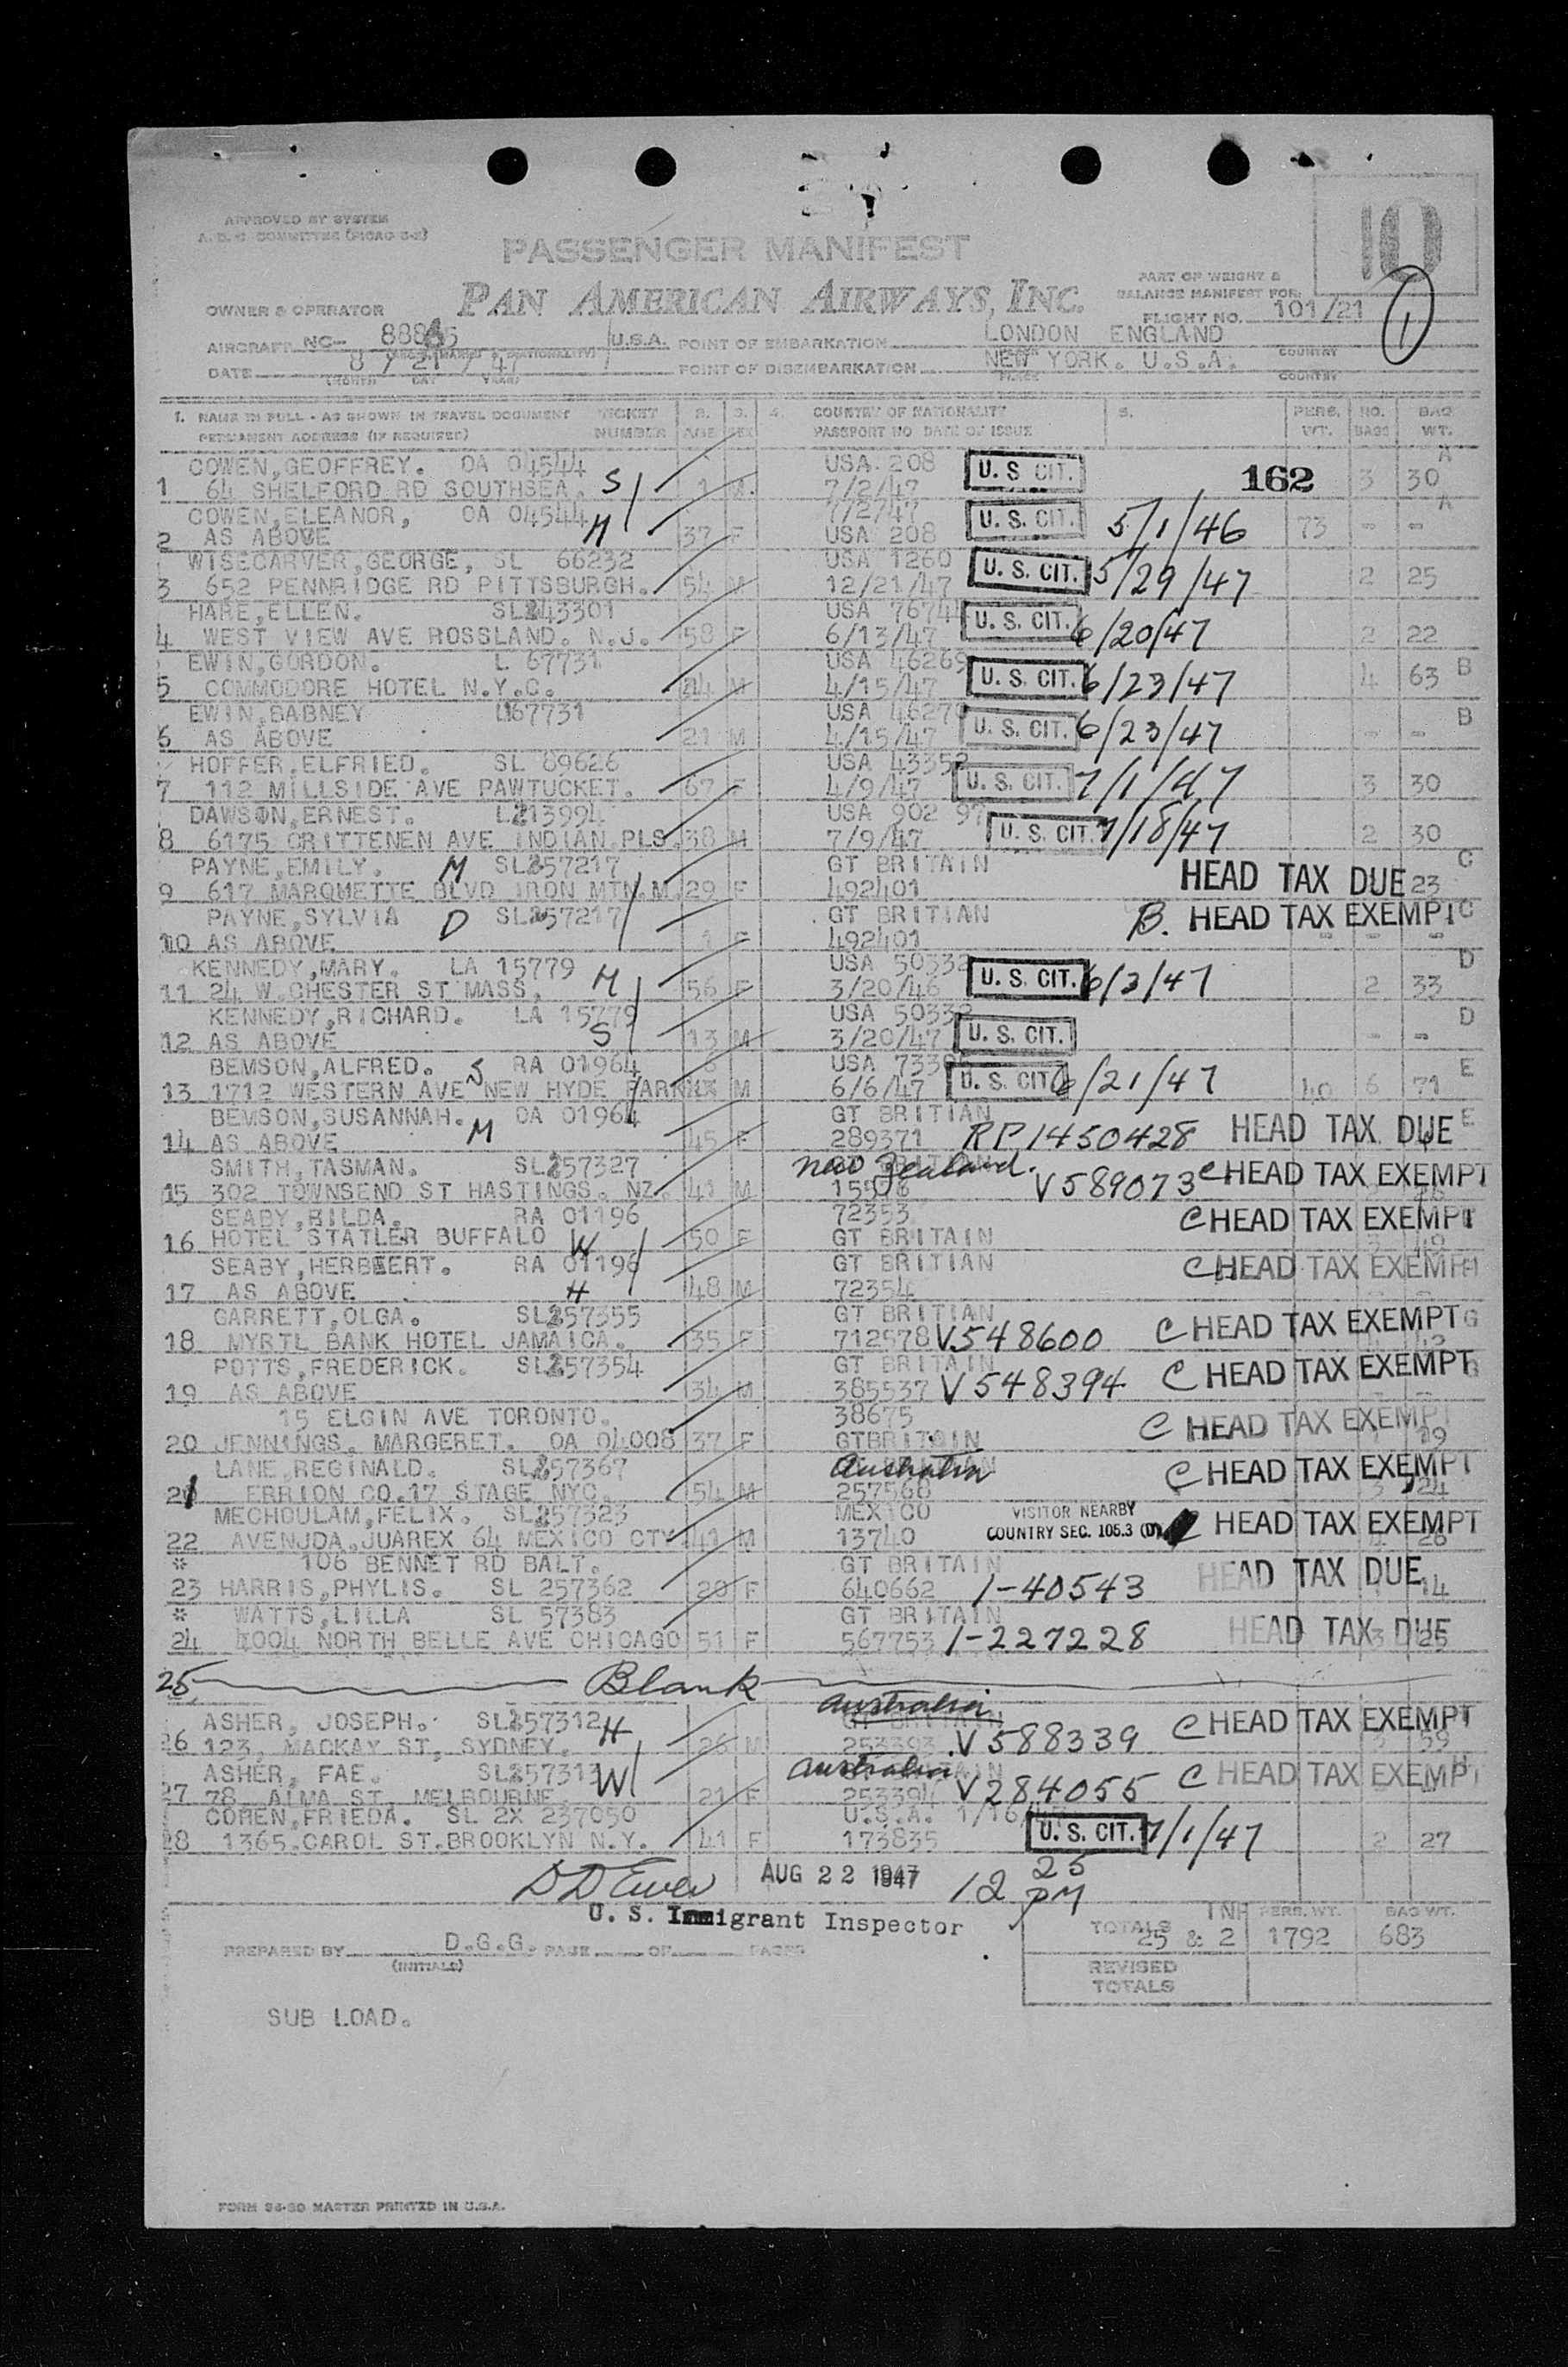 10
APPROVED BY SYSTEM
A. D. C. COMMITTEE (PICAO 5-2)
PASSENGER MANIFEST
PAN AMERICAN AIRWAYS, INC.
PART OF WEIGHT &
BALANCE MANIFEST FOR:
OWNER & OPERATOR
FLIGHT NO. 101/21
1
AIRCRAFT NC- U.S.A. POINT OF EMBARKATION LONDON ENGLAND
DATE 8 / 21 / 47 POINT OF DISEMBARKATION NEW YORK. U.S.A. COUNTRY
(MONTH DAY YEAR) PLACE COUNTRY
1. NAME IN FULL - AS SHOWN IN TRAVEL DOCUMENT TICKET 2. 3. 4. COUNTRY OF NATIONALITY 5. PERS. NO. BAG
PERMANENT ADDRESS (IF REQUIRED) NUMBER AGE SEX PASSPORT NO DATE OF ISSUE WT. BAGS WT.
COWEN,GEOFFREY. OA 04544 USA 208 U. S. CIT. 162 A
1 64 SHELFORD RD SOUTHSEA. S 1 M. 7/2/47 3 30
COWEN,ELEANOR, OA 04544 M 7/2/47 U. S. CIT. 5/1/46 A
2 AS ABOVE 37 F USA 208 73 - -
WISECARVER,GEORGE, SL 66232 USA 1260 U. S. CIT. 5/29/47
3 652 PENNRIDGE RD PITTSBURGH. 54 M 12/21/47 2 25
HARE,ELLEN. SL243301 USA 7674 U. S. CIT. 6/20/47
4 WEST VIEW AVE ROSSLAND. N.J. 58 F 6/13/47 2 22
EWIN,GORDON. L 67731 USA 46269 U. S. CIT. 6/23/47 B
5 COMMODORE HOTEL N.Y.C. M 4/15/47 4 63
EWIN,BABNEY L67731 USA 46270 U. S. CIT. 6/23/47 B
6 AS ABOVE 21 M 4/15/47 - -
HOFFER,ELFRIED. SL 89626 USA 43352 U. S. CIT. 7/1/47
7 112 MILLSIDE AVE PAWTUCKET. 67 F 4/9/47 3 30
DAWSON,ERNEST. L213994 USA 902 97 U. S. CIT. 7/18/47
8 6175 CRITTENEN AVE INDIAN.PLS. 38 M 7/9/47 2 30
PAYNE,EMILY. M SL257217 GT BRITAIN HEAD TAX DUE C
9 617 MARQMETTE BLVD IRON MTN.M. 29 F 492401 23
PAYNE,SYLVIA D SL257217 GT BRITIAN B. HEAD TAX EXEMPT C
10 AS ABOVE 1 F 492401 - - -
KENNEDY,MARY. LA 15779 M USA 50332 U. S. CIT. 6/2/47 D
11 24 W.CHESTER ST MASS, 56 F 3/20/46 2 33
KENNEDY,RICHARD. LA 15779 USA 50332 U. S. CIT. D
12 AS ABOVE S 13 M 3/20/47 - -
BEMSON,ALFRED. S RA 01964 6 USA 733 U. S. CIT. 6/21/47 E
13 1712 WESTERN AVE NEW HYDE PARK M 6/6/47 40 6 71
BEMSON,SUSANNAH. M OA 01964 GT BRITIAN HEAD TAX DUE E
14 AS ABOVE 45 F 289371 RP 1450428
SMITH,TASMAN. SL257327 New Zealand. C HEAD TAX EXEMPT
15 302 TOWNSEND ST HASTINGS. NZ. 41 M V589073
SEABY,HILDA. RA 01196 72353 C HEAD TAX EXEMPT
16 HOTEL STATLER BUFFALO W 50 F GT BRITAIN
SEABY,HERBEERT. RA 01196 GT BRITIAN C HEAD TAX EXEMPT
17 AS ABOVE H 48 M 72354
GARRETT,OLGA. SL257355 GT BRITIAN C HEAD TAX EXEMPT G
18 MYRTL BANK HOTEL JAMAICA. 35 F 712578 V548600
POTTS,FREDERICK. SL257354 GT BRITAIN C HEAD TAX EXEMPT G
19 AS ABOVE 34 M 385537 V548394
15 ELGIN AVE TORONTO. 38675 C HEAD TAX EXEMPT
20 JENNINGS. MARGERET. OA 04008 37 F GTBRITAIN 19
LANE,REGINALD. SL257367 Australia C HEAD TAX EXEMPT
21 ERRION CO.17 STAGE NYC. 54 M 257568 3 24
MECHOULAM,FELIX. SL257323 MEXICO VISITOR NEARBY HEAD TAX EXEMPT
22 AVENJDA,JUAREX 64 MEXICO CTY. 41 M 13740 COUNTRY SEC. 105.3 (D) 26
* 106 BENNET RD BALT. GT BRITAIN HEAD TAX DUE
23 HARRIS,PHYLIS. SL 257362 20 F 640662 1-40543 14
* WATTS,LILLA SL 57383 GT BRITAIN HEAD TAX DUE
24 4004 NORTH BELLE AVE CHICAGO 51 F 567753 1-227228 3 25
25 Blank
ASHER, JOSEPH. SL257312 H Australia C HEAD TAX EXEMPT
26 123, MACKAY ST, SYDNEY. 26 M 253393 V588339 59
ASHER, FAE. SL257313 W Australia C HEAD TAX EXEMPT H
27 78 ALMA ST. MELBOURNE. 21 F 253394 V284055
COHEN,FRIEDA. SL 2X 237050 U.S.A. 1/16/47 U. S. CIT. 7/1/47
28 1365.CAROL ST.BROOKLYN N.Y. 41 F 173835 2 27
AUG 22 1947 12 25 PM
U. S. Immigrant Inspector
TOTALS 25 & 2 INF PERS. WT. 1792 BAG WT. 683
PREPARED BY D.G.G. PAGE OF PAGES
(INITIALS)
REVISED
TOTALS
SUB LOAD.
FORM 94-20 MASTER PRINTED IN U.S.A.